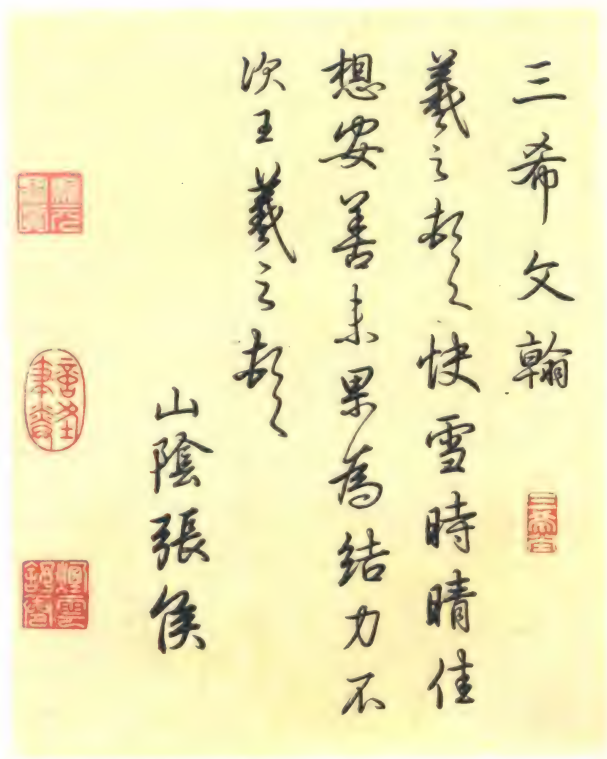 三希文翰
羲之頓首快雪時晴佳
想安善未果為結力不
次王羲之頓首
山陰張侯
三希堂